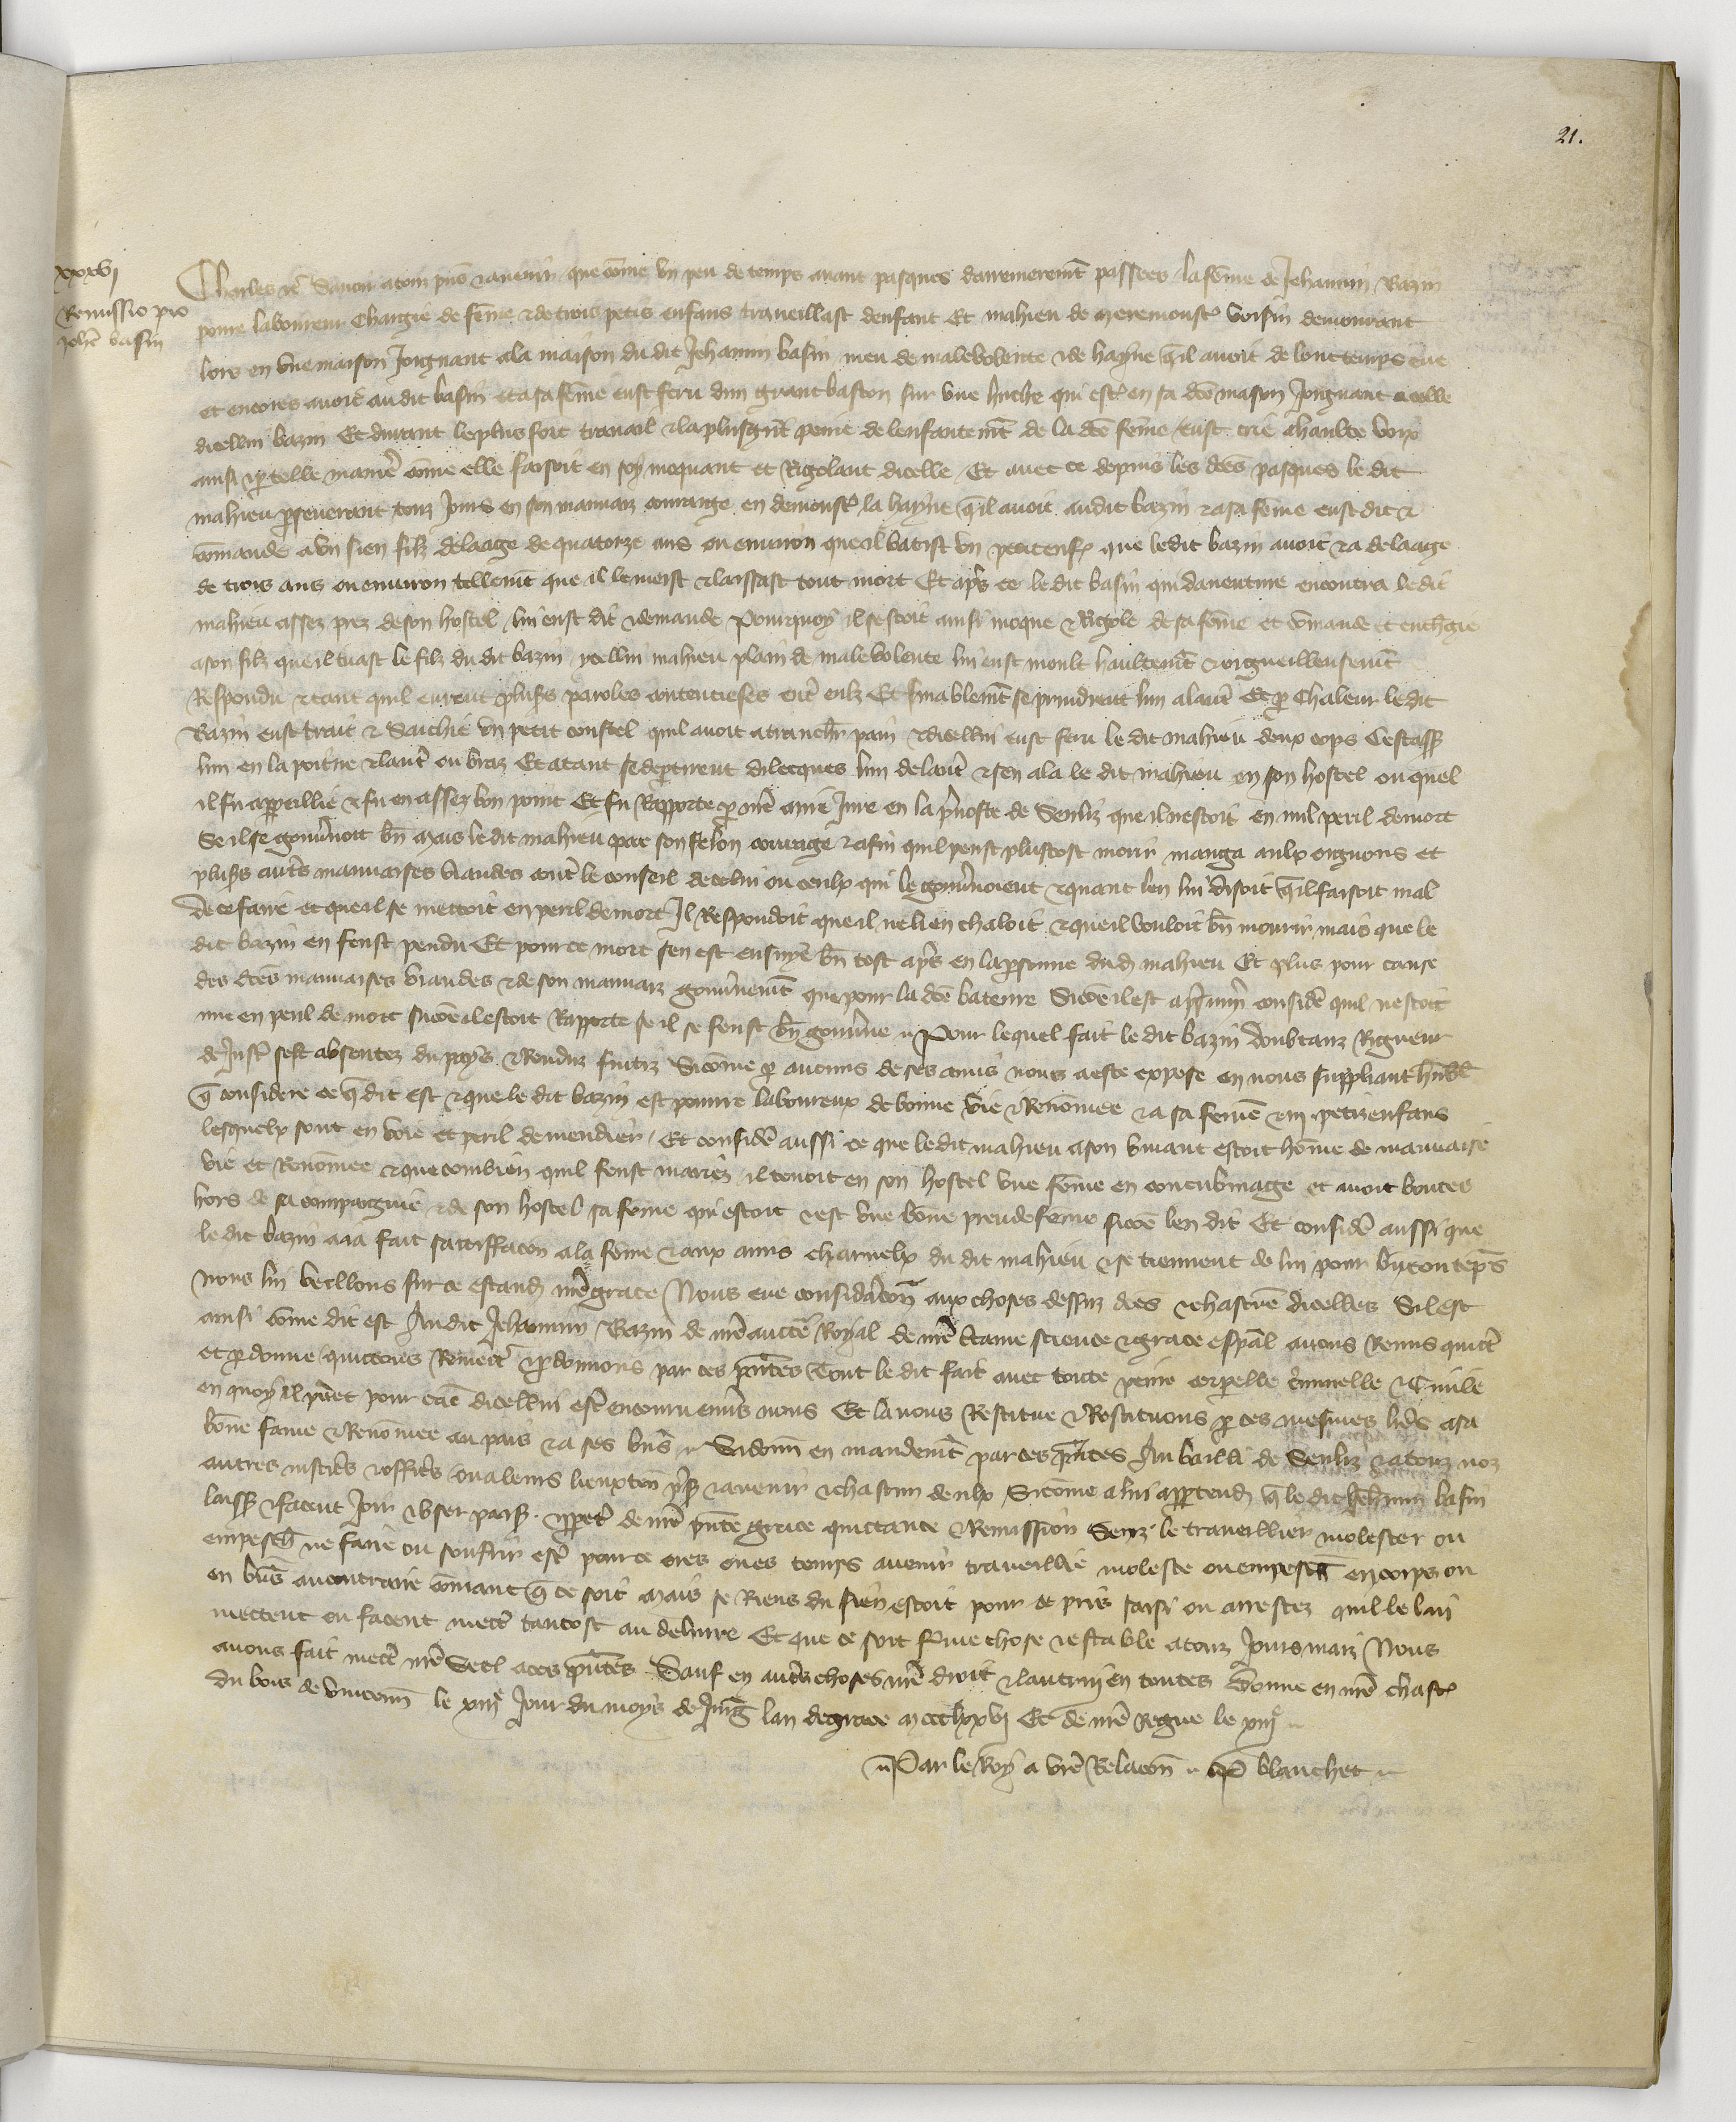 21.
xxxvj
Remissio pro
Joh̄e basin
Charles etc̄ Sauoir a touz p̄ns ⁊ auenir que cōme vn peu de temps auant pasques darrenierem̄t passees la fēme de Jehannin Bazin
poure laboureur chargie de fēme ⁊ de trois petis enfans traueillast denfant Et mahieu de voisin demourant
lors en vne maison Joignant a la maison du dit Jehannin basin meu de maleuolente ⁊ de hayne q̄ il auoit de lonc temps eue
et encores auoit au dit basin et a sa fēme eust feru dun grant baston sur vne huche qui est en sa dc̄e maison Joignant a celle
dicellui bazin Et durant le plus fort trauail ⁊ la plus gn̄t peine de lenfantem̄t de la dc̄e fēme eust crie a haulte voix
ainsi ⁊ p telle manie᷑ cōme elle faisoit en soy moquant et Rigolant dicelle Et auec ce depuis les dc̄es pasques le dit
mahieu pseuerant touz Jours en son mauuaiz courage en demonst la hayne q̄ il auoit au dit bazin ⁊ a sa fēme eust dit ⁊
cōmande a vn sien filz de laage de quatorze ans ou enuiron que il batist vn petit enf que le dit bazin auoit ⁊ a de laage
de trois ans ou enuiron tellem̄t que il le meist ⁊ laissast tout mort Et ap̄s ce le dit basin qui dauenture encontra le dit
mahieu assez prez de son hostel lui eust dit ⁊ demande pourquoy il sestoit ainsi moque ⁊ Rigole de sa fēme et cōmande et enchgie
a son filz que il tuast le filz du dit bazin ycellui mahieu plain de maleuolente lui eust moult haultem̄t ⁊ orgueilleusem̄t
Respondu ⁊ tant quil eurent plus's paroles contencieses ent᷑ eulx Et finablem̄t se prindrent lun a laut᷑ Et p chaleur le dit
Bazin eust trait ⁊ Saichie vn petit coustel quil auoit a trancher pain ⁊ dicellui eust feru le dit mahieu deux cops Cestass
lun en la poitrine ⁊ laut᷑ ou braz Et atant se deptirent dilecques lun de laut᷑ ⁊ sen ala le dit mahieu en son hostel ou quel
il fu appeillie ⁊ fu en assez bon point Et fu Rapporte p nr̄e mire Jure en la p̄uoste de Senliz que il nestoit en nul peril de mort
Se il se gouu̾noit bn̄ Mais le dit mahieu par son felon courage ⁊ afin quil peust plustost morir manga aulx oignons et
plus's aut̄s mauuaises viandes cont᷑ le conseil de celui ou ceulx qui le gouu̾noient ⁊ quant len lui disoit q̄ il faisoit mal
de ce faire et que il se mettoit en peril de mort Il Respondoit que il ne len chaloit ⁊ que il vouloit bn̄ mourir mais que le
dit bazin en feust pendu Et pour ce mort sen est ensuye bn̄ tost ap̄s en la psonne dud mahieu Et plus pour cause
des dc̄es mauuaises viandes ⁊ de son mauuaiz gouu̾nem̄t que pour la dc̄e bateure Sicōe il est consid̄e quil nestoit
mie en peril de mort sicōe il estoit Rapporte se il se feust bn̄ gouu̾ne Pour lequel fait le dit bazin doubtanz Rigueur
de Just sest absentez du pays ⁊ Renduz fuitiz Sicōme p aucuns de ses amis nous a este expose en nous suppliant hūbl̄
q̄ considere ce q̄ dit est ⁊ que le dit bazin est poure laboureux de bonne vie ⁊ Renōmee ⁊ a sa femē ⁊ iij petiz enfans
lesquelx sont en voie et peril de mendier Et consid̄e aussi ce que le dit mahieu a son viuant estoit hōme de mauuaise
vie et Renōmee ⁊ que combien quil feust mariez il tenoit en son hostel vne fēme en concubinage et auoit boutee
hors de sa compaignie ⁊ de son hostel sa fēme qui estoit ⁊ est vne bōne preude fēme sicōe len dit Et consid̄e aussi que
le dit bazin a ia fait satisffac̄on a la fēme ⁊ aux amis charnelx du dit mahieu ⁊ se tiennent de lui pour bn̄ contēps
Nous lui veillons sur ce estand nr̄e grace Nous eue considac̄on aux choses dessuz dc̄es ⁊ chascūe dicelles Sil est
ainsi cōme dit est Au dit Jehannin Bazin de nr̄e auctē Royal de nr̄e c̄taine science ⁊ grace esp̄al auons Remis quict᷑
et pdonne quictons Remect᷑ ⁊ pdonnons par ces p̄ntes Tout le dit fait auec toute peine corpelle c̄iminelle ⁊ Ciuile
en quoy il puet pour cāe dicellui est᷑ encouru enu̾s nous Et la nous Restitue ⁊ Restituons p ces mesmes lr̄es a sa
bōne fame ⁊ Renōmee au pais ⁊ a ses bn̄s Sidonn̄ en mandem̄t par ces p̄ntes Au bailli de Senliz ⁊ a touz noz
autres justic̄s ⁊ offic̄s ou a leurs lieuxten̄ p̄s ⁊ auenir ⁊ chascun deulx Sicōme a lui apptend q̄ le dit Jeh̄nnin basin
laiss ⁊ facent Joir ⁊ vser pais ⁊ ppet̄ de nr̄e p̄nte grace quictance ⁊ Remission Senz le traueillier molester ou
empesch ne faire ou soufrir est᷑ pour ce ores ou es temps auenir traueillie moleste ou empesch en corps ou
en bn̄s au contraire cōmant q̄ ce soit Mais se Riens du sien estoit pour ce pris saisi ou arrestez quil le lui
mettent ou facent mect᷑ tantost au deliure Et que ce soit ferme chose ⁊ estable a touz Jours mais Nous
auons fait mect᷑ nr̄e Seel a ces p̄ntes Sauf en aut̄s choses nr̄e droit ⁊ lautruy en toutes Donne en nr̄e chast
du bois de vincenn̄ le xiiije Jour du moys de Juing lan de grace Mccclxxvj Et de nr̄e Regne le xiije
Par le Roy a vr̄e Relac̄on P blanchet